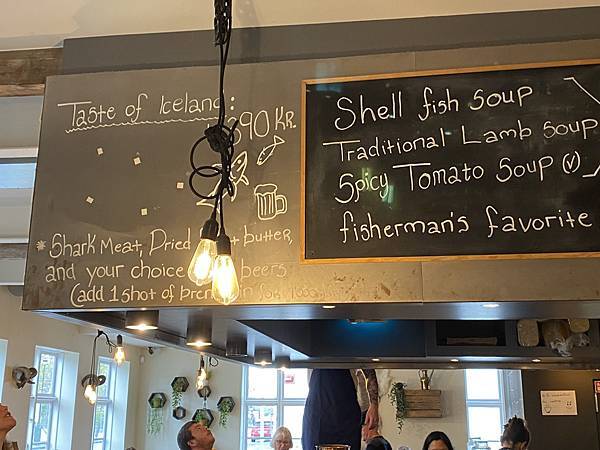 Taste of Iceland:
90 KR.
* Shark Meat, Dried butter,
and your choice beers
(add 1 shot of
Shell fish soup
Traditional Lamb soup
Spicy Tomato soup (v)
fisherman's favorite